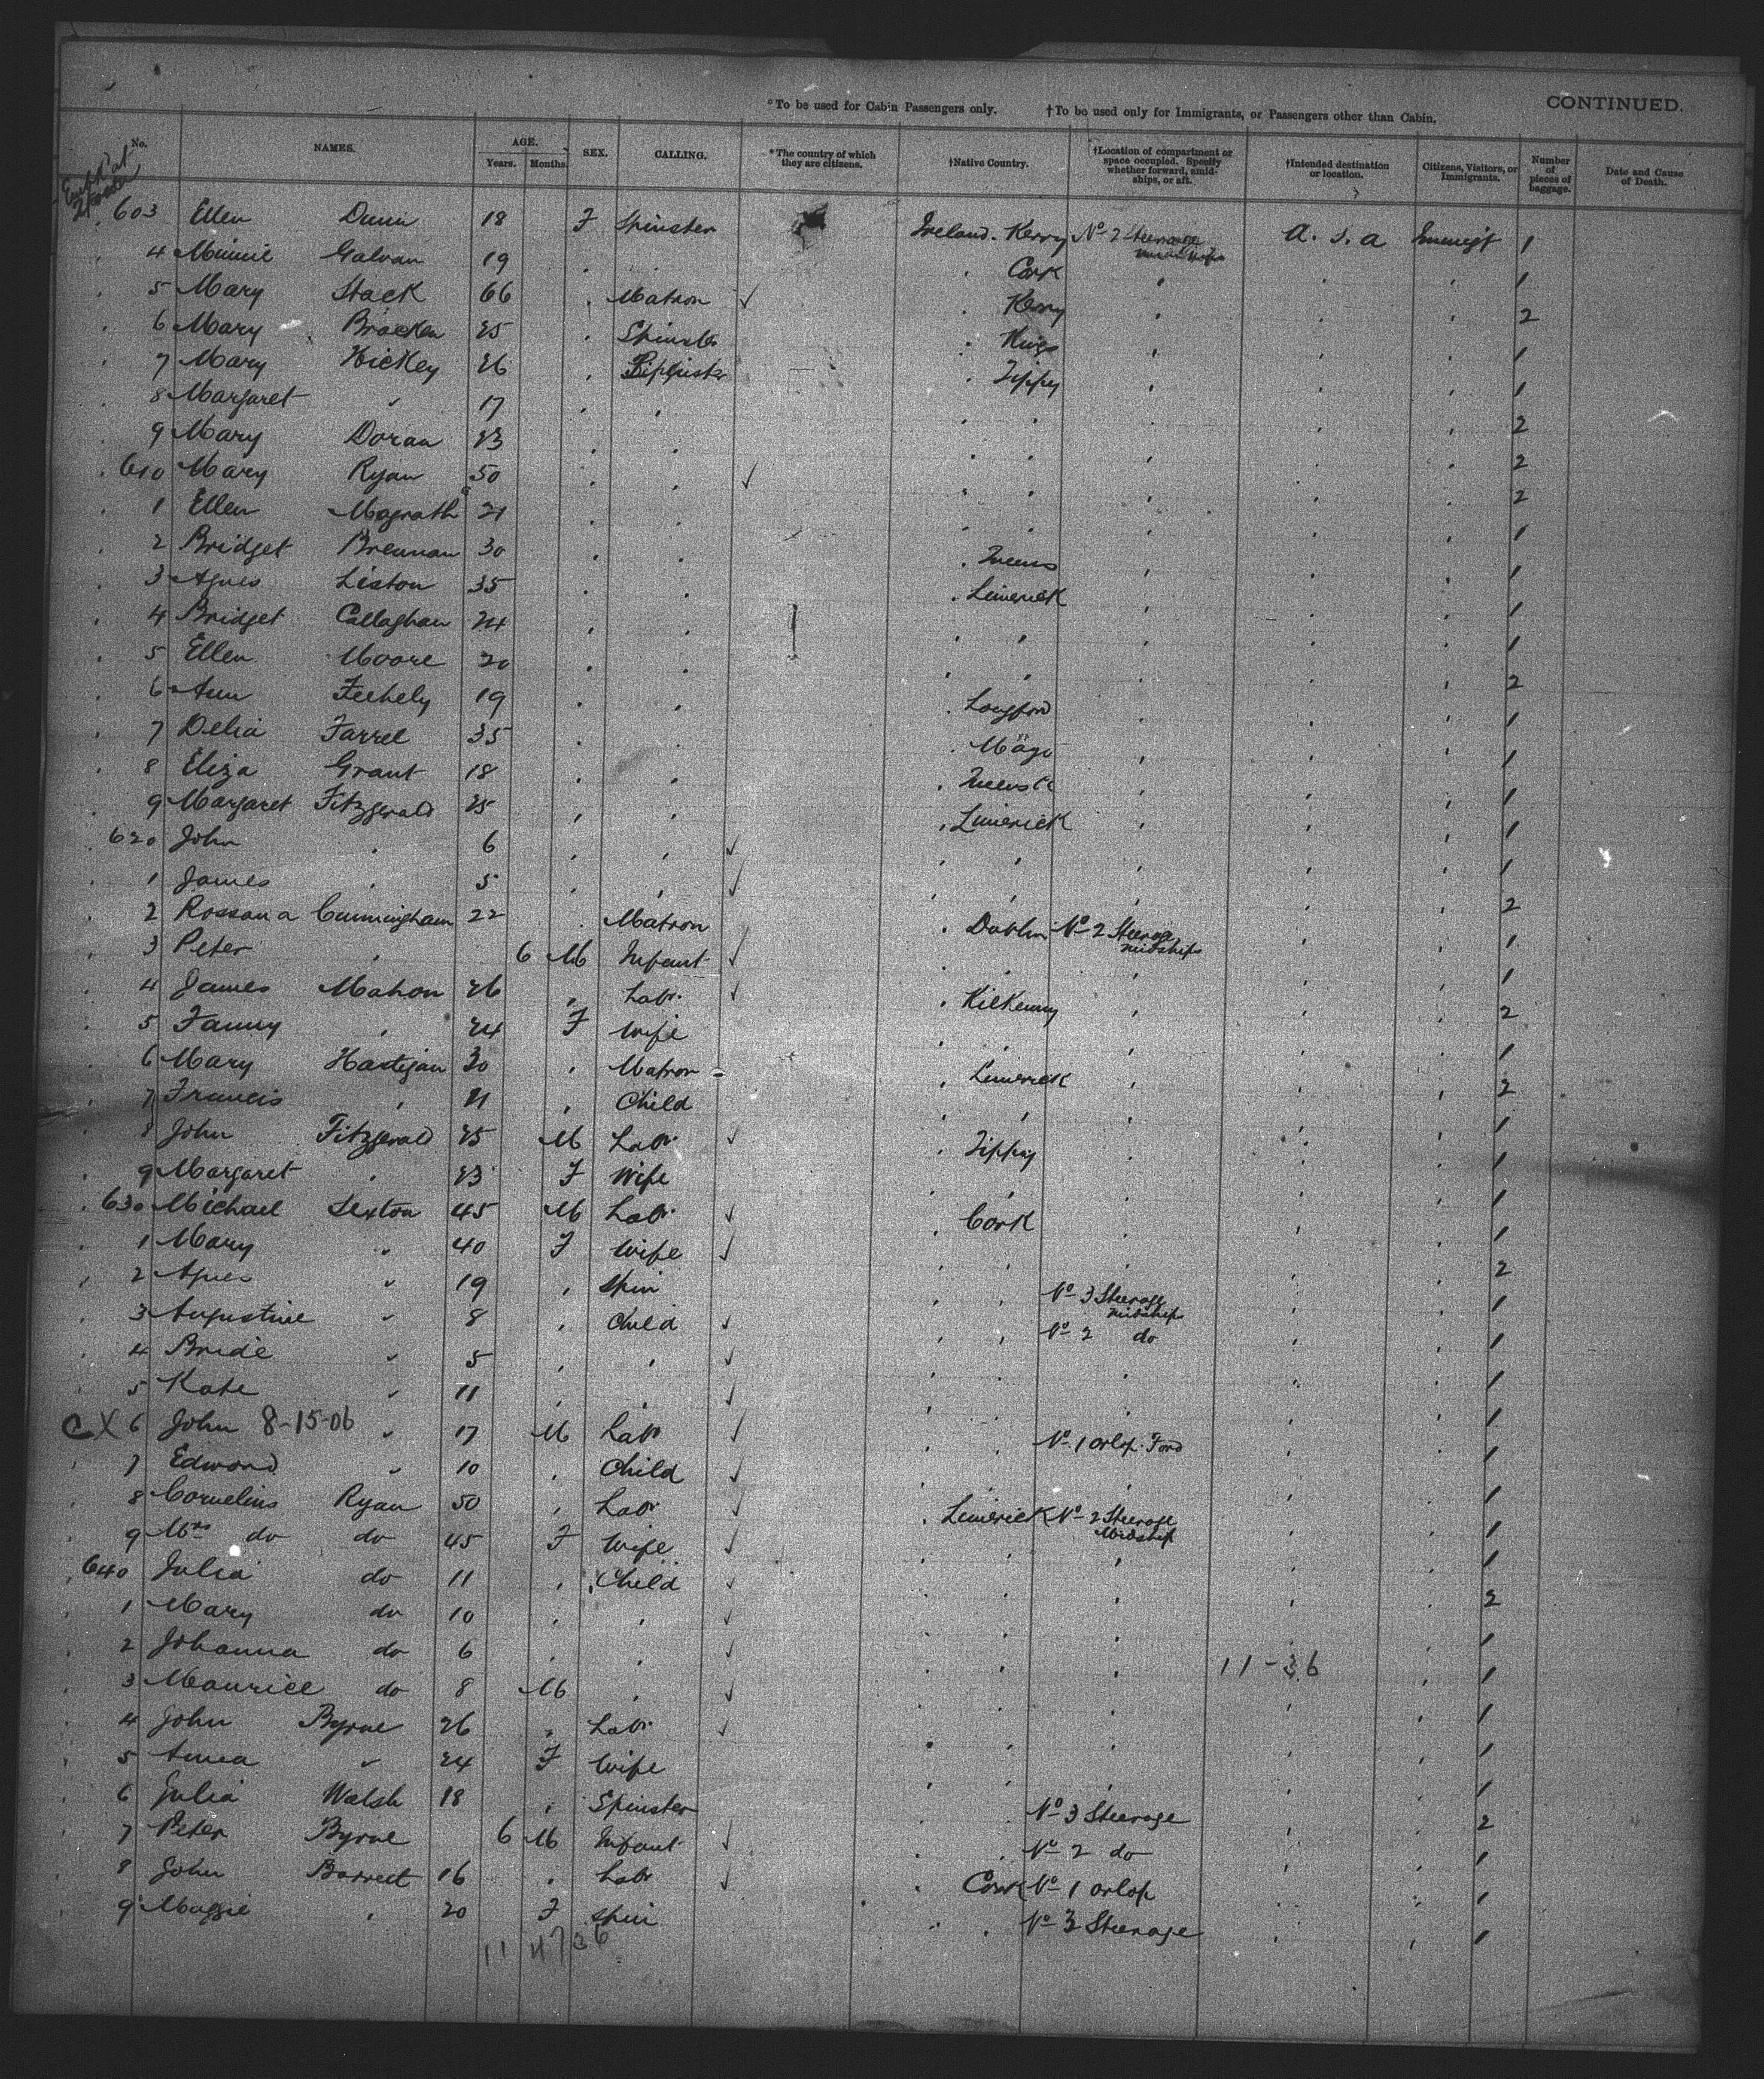 CONTINUED.
*To be used for Cabin Passengers only. †To be used only for Immigrants, or Passengers other than Cabin.
No. NAMES. AGE. Years. Months. SEX. CALLING. *The country of which they are citizens. †Native Country. †Location of compartment or space occupied. Specify whether forward, amidships, or aft. †Intended destination or location. Citizens, Visitors, or Immigrants. Number of pieces of baggage. Date and Cause of Death.
603 Ellen Dunn 18 F Spinster Ireland. Kerry No 2 Steerage U.S.A 1
4 Minnie Galvan 19 Cork 1
5 Mary Stack 66 Matron ✓ Kerry 2
6 Mary Bracken 25 Spinster Kings 1
7 Mary Hickey 26 Tippy 1
8 Margaret " 17 2
9 Mary Doran 23 2
610 Mary Ryan 50 ✓ 2
1 Ellen Magrath 21 1
2 Bridget Brennan 30 Queens 1
3 Agnes Liston 35 Limerick 1
4 Bridget Callaghan 24 " 1
5 Ellen Moore 20 " 2
6 Ann Feehely 19 Longford 1
7 Delia Farrel 35 Mayo 1
8 Eliza Grant 18 1
9 Margaret Fitzgerald 25 Limerick 1
620 John " 6 ✓ 1
1 James " 5 ✓ 2
2 Rossana Cunningham 22 Matron Dublin No 2 Steerage midships 1
3 Peter " 6 M Infant ✓ 1
4 James Mahon 26 " Labr. ✓ Kilkenny 2
5 Fanny " 24 F Wife 1
6 Mary Hartigan 30 " Matron Limerick 2
7 Francis " " Child 1
8 John Fitzgerald 25 M Labr. ✓ Tippy 1
9 Margaret " 23 F Wife 1
630 Michael Sexton 45 M Labr. ✓ Cork 1
1 Mary " 40 F Wife ✓ 2
2 Agnes " 19 " Spin No 3 Steerage midship 1
3 Augustine " 8 " Child ✓ No 2 do 1
4 Bride " 5 " " ✓ 1
5 Kate " 11 " " ✓ 1
CX 6 John 8-15-06 " 17 M Labr ✓ No. 1 orlop. Ford 1
7 Edward " 10 " Child ✓ 1
8 Cornelius Ryan 50 " Labr ✓ Limerick No 2 Steerage Midship 1
9 Mrs do do 45 F Wife ✓ 1
640 Julia do 11 " Child ✓ 2
1 Mary do 10 " " ✓ 1
2 Johanna do 6 " " ✓ 11-36 1
3 Maurice do 8 M " ✓ 1
4 John Byrne 26 " Labr. ✓ 1
5 Anna " 24 F Wife 1
6 Julia Walsh 18 " Spinster No 3 Steerage 2
7 Peter Byrne 6 M Infant ✓ No 2 do 1
8 John Barrett 16 " Labr ✓ Cork No 1 orlop 1
9 Maggie " 20 F Spin No 3 Steerage 1
11 4736